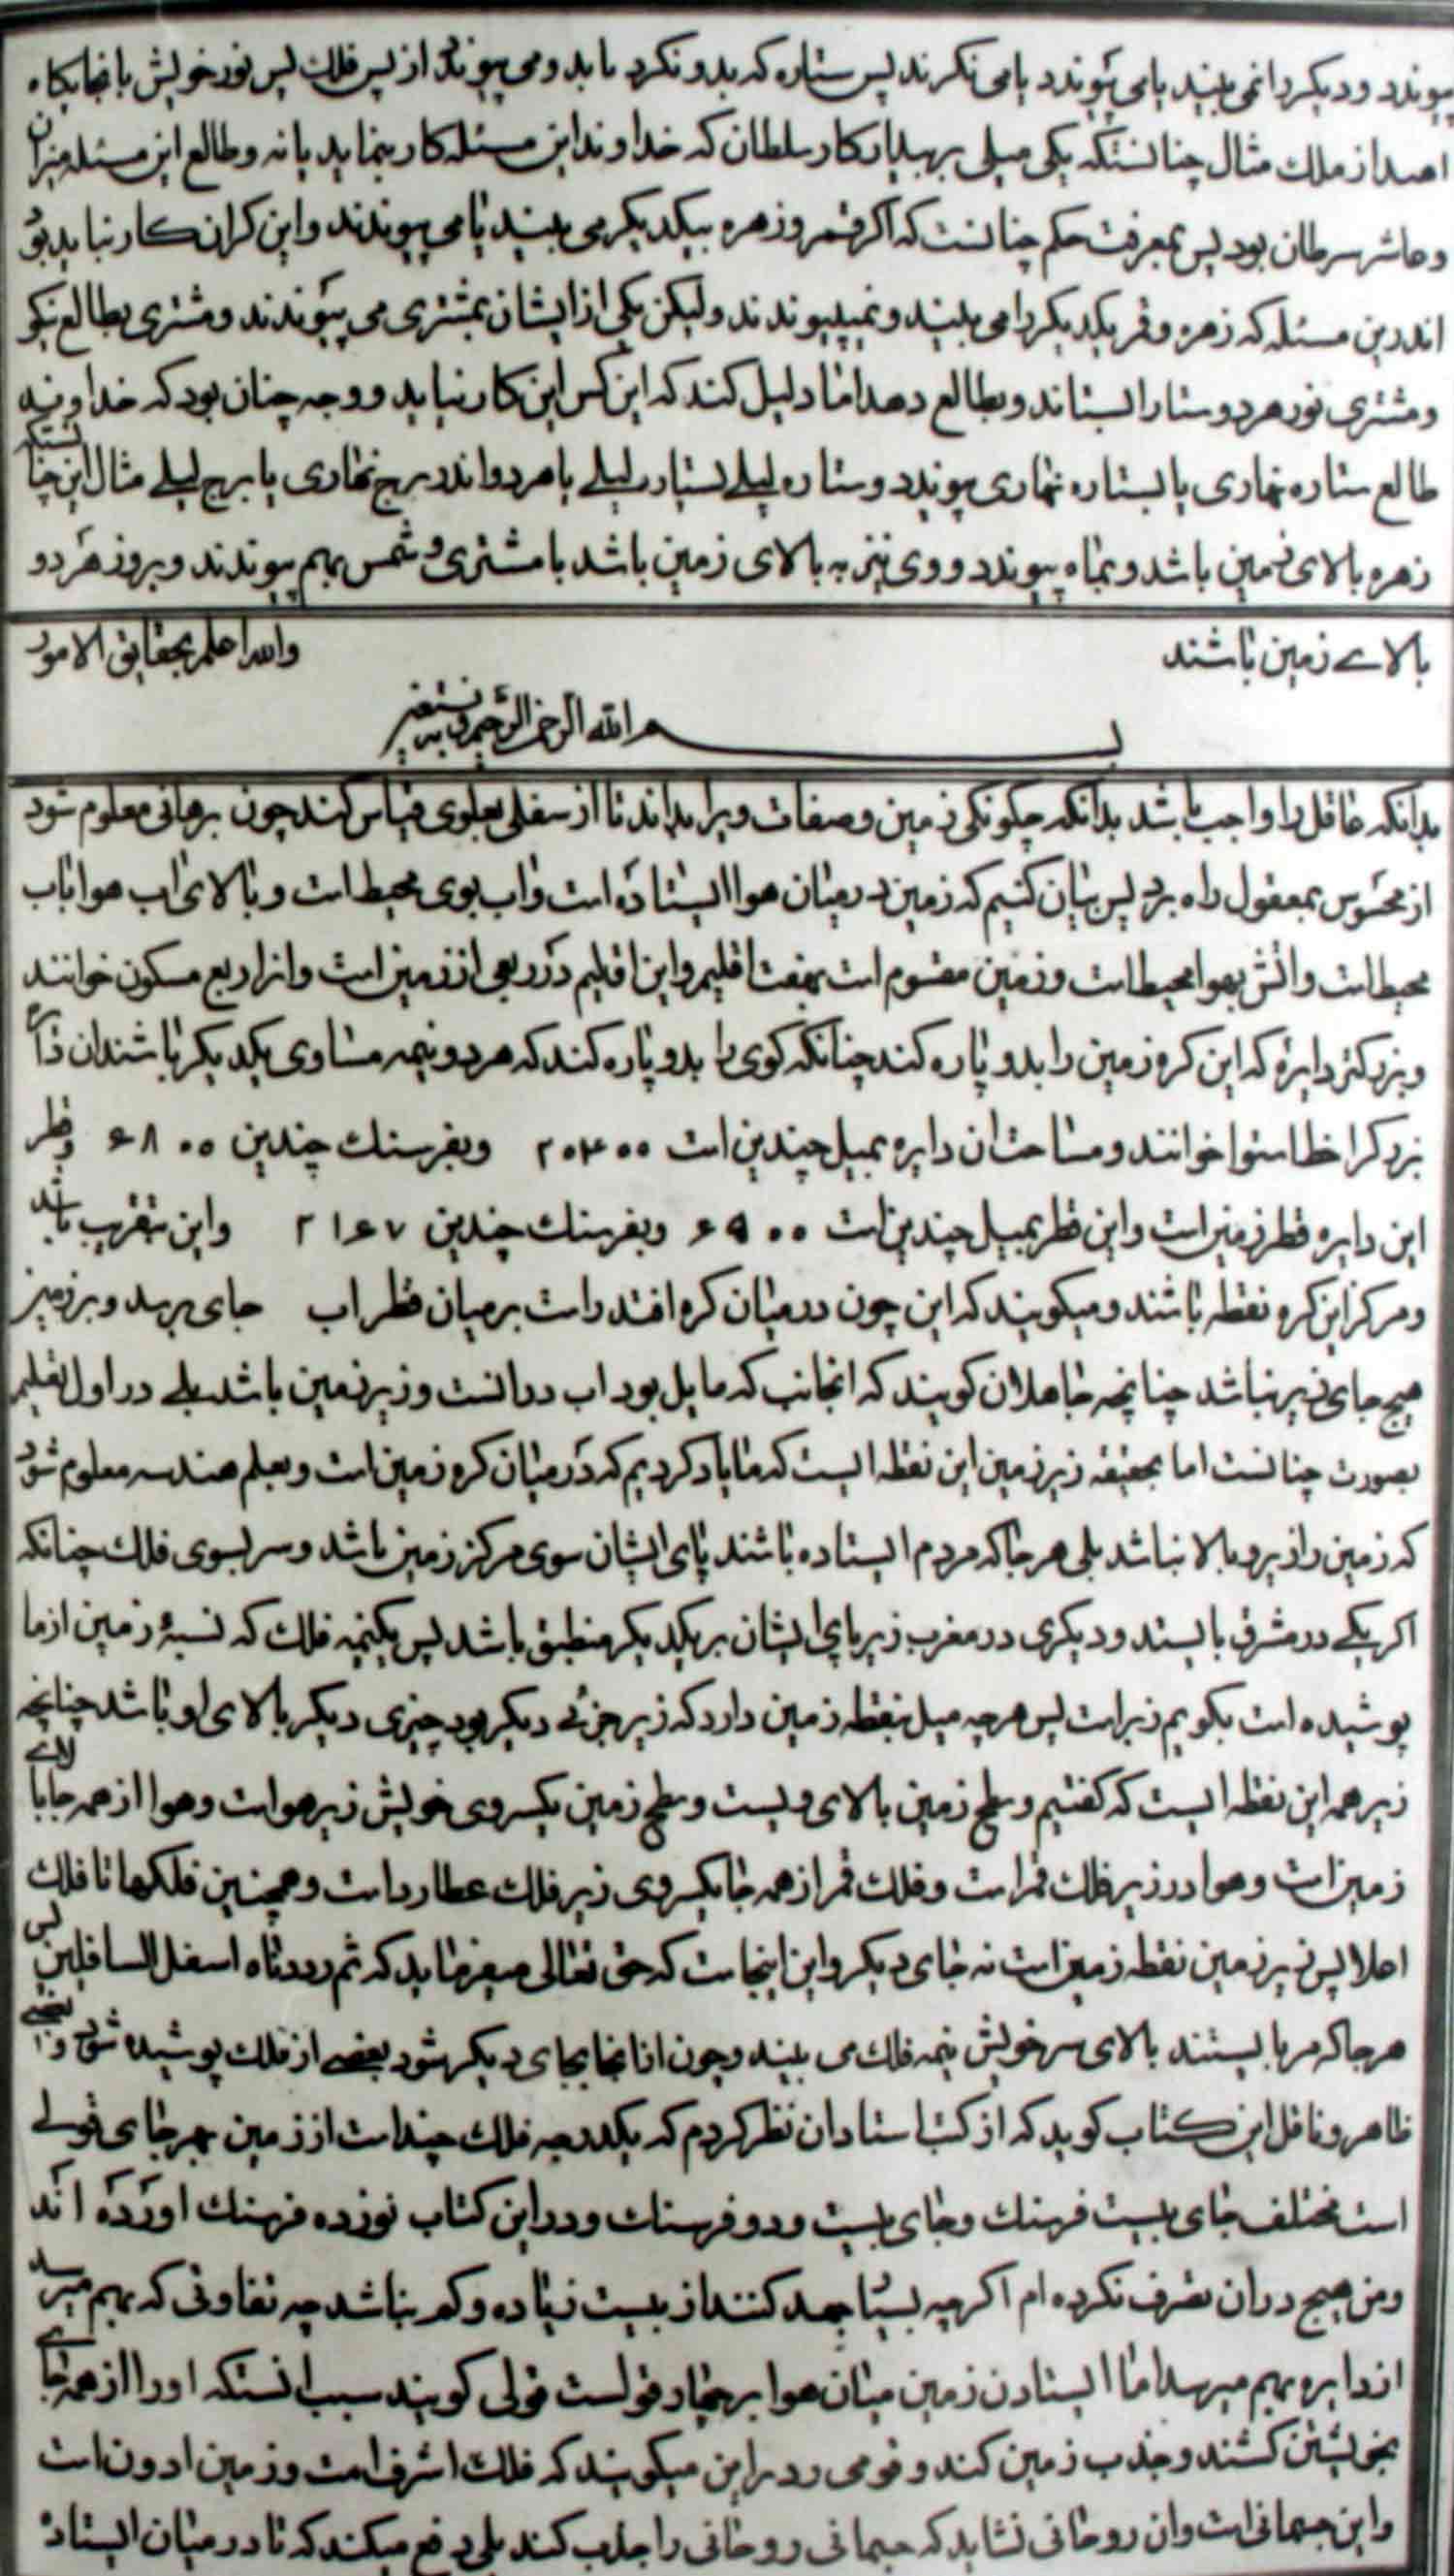 پیوندد و دیگر را نمی بیند یا می پیوندد یا می نگرند پس ستاره که بدو نگرد یا بدو می پیوندد از پس فلک پس نور خویش بانجایگاه
اهد از ملک مثال چنانستکه یکی میلی بهر کار سلطان که خداوند این مسئله کار بنماید یا نه و طالع این مسئله میزان
و عاشر سرطان بود پس بمعرفت حکم چنانست که اگر قمر و زهره بیکدیگر می بینند یا می پیوندند و این کران کار نیاید بود
اندرین مسئله که زهره و قمر یکدیگر را می بینند و نمیپیوندند و لیکن یکی از ایشان بمشتری می پیوندند و مشتری بطالع نکو
و مشتری نور هر دو ستارا بستاند و بطالع دهد اما دلیل کند که این کس این کار نیاید و وجه چنان بود که خداوند
طالع ستاره نهاری یا بستاره نهاری پیوندد و ستاره لیلے بستاره لیلے یا هر دو اندر برج نهاری یا برج لیلے مثال این چنانستکه
زهره بالای زمین باشد و بماه پیوندد و وی نیز به بالای زمین باشد یا مشتری و شمس بهم پیوندند و بروز هر دو
بالاے زمین باشند والله اعلم بحقایق الامور
بسم الله الرحمن الرحیم و به نستعین
بدانکه عاقل را واجب باشد بدانکه چگونگی زمین و صفات ویرا بداند تا از سفلی بعلوی قیاس کند چون برهانی معلوم شود
از محسوس بمعقول راه برد پس بیان کنیم که زمین در میان هوا ایستاده است و اب بوی محیط است و بالای اب هوا باب
محیطست و اتش بهوا محیطاست و زمین مقسوم است بهفت اقلیم و این اقلیم در ربعی از زمین است و انرا ربع مسکون خوانند
و بزرکتر دایرۀ که این کره زمین را بدو پاره کند چنانکه کوی را بدو پاره کند که هر دو نیمه مساوی یکدیگر باشند ان دایره
بزرک را خط استوا خوانند و مساحت ان دایره بمیل چندین است ۲۰۴۰۰ و بفرسنک چندین ۶۸۰۰ و قطر
این دایره قطر زمین است و این قطر بمیل چندین است ۶۵۰۰ و بفرسنک چندین ۲۱۶۷ و این بتقریب باشد
و مرکز این کره نقطه باشند و میکویند که این چون در میان کره افتد راست بر میان قطر اب جای برسد و بر زمین
هیچ جای زیر نباشد چنانچه جاهلان کویند که انجانب که مایل بود اب در انست و زیر زمین باشد بلے در اول تعلیم
بصورت چنانست اما بحقیقه زیر زمین این نقطه ایست که ما یاد کردیم که در میان کره زمین است و بعلم هندسه معلوم شود
که زمین را زیر و بالا نباشد بلی هر جا که مردم ایستاده باشند پای ایشان سوی مرکز زمین باشد و سر بسوی فلک چنانکه
اکر یکے در مشرق بایستد و دیکری در مغرب زیر پای ایشان بر یکدیگر منطبق باشد پس یکنیمه فلک که نسبۀ زمین از ما
پوشیده است بکویم زیر است پس هر چه میل بنقطه زمین دارد که زیر جزئے دیکر بود چیزی دیکر بالای او باشد چنانچه
زیر همه این نقطه ایست که کفتیم و سطح زمین بالای ویست و سطح زمین یکسروی خویش زیر هواست و هوا از همه جا بالاے
زمین است و هوا در زیر فلک قمر است و فلک قمر از همه جا یکسروی زیر فلک عطارد است و همچنین فلکها تا فلک
اعلا پس زیر زمین نقطه زمین است نه جای دیکر و این اینجاست که حق تعالی میفرماید که ثم رددناه اسفل السافلین پس
هر جا که مر بایستند بالای سر خویش نیمه فلک می بیند و چون از انجا بجای دیکر شود بعضے از فلک پوشیده شود و بعضے
ظاهر و ناقل این کتاب کوید که از کتب استادان نظر کردم که یکدرجه فلک چند است از زمین بهر جای قولے
است مختلف جای بیست فرسنک و جای بیست و دو فرسنک و در این کتاب نوزده فرسنک اورده اند
و من هیچ در ان تصرف نکرده ام اکر چه بسیا جهد کنند از بیست زیاده و کم نباشد چه تفاوتی که بهم میرسد
از دایره بهم میرسد اما ایستادن زمین میان هوا بر چهار قولست قولی کویند سبب انستکه او را از همه جاے
بخویشتن کشند و جذب زمین کند و قومی رد برین میکویند که فلک اشرف است و زمین ادون است
و این جسمانی است و ان روحانی نشاید که جسمانی روحانی را جذب کند بلی دفع میکند که تا در میان ایستاده